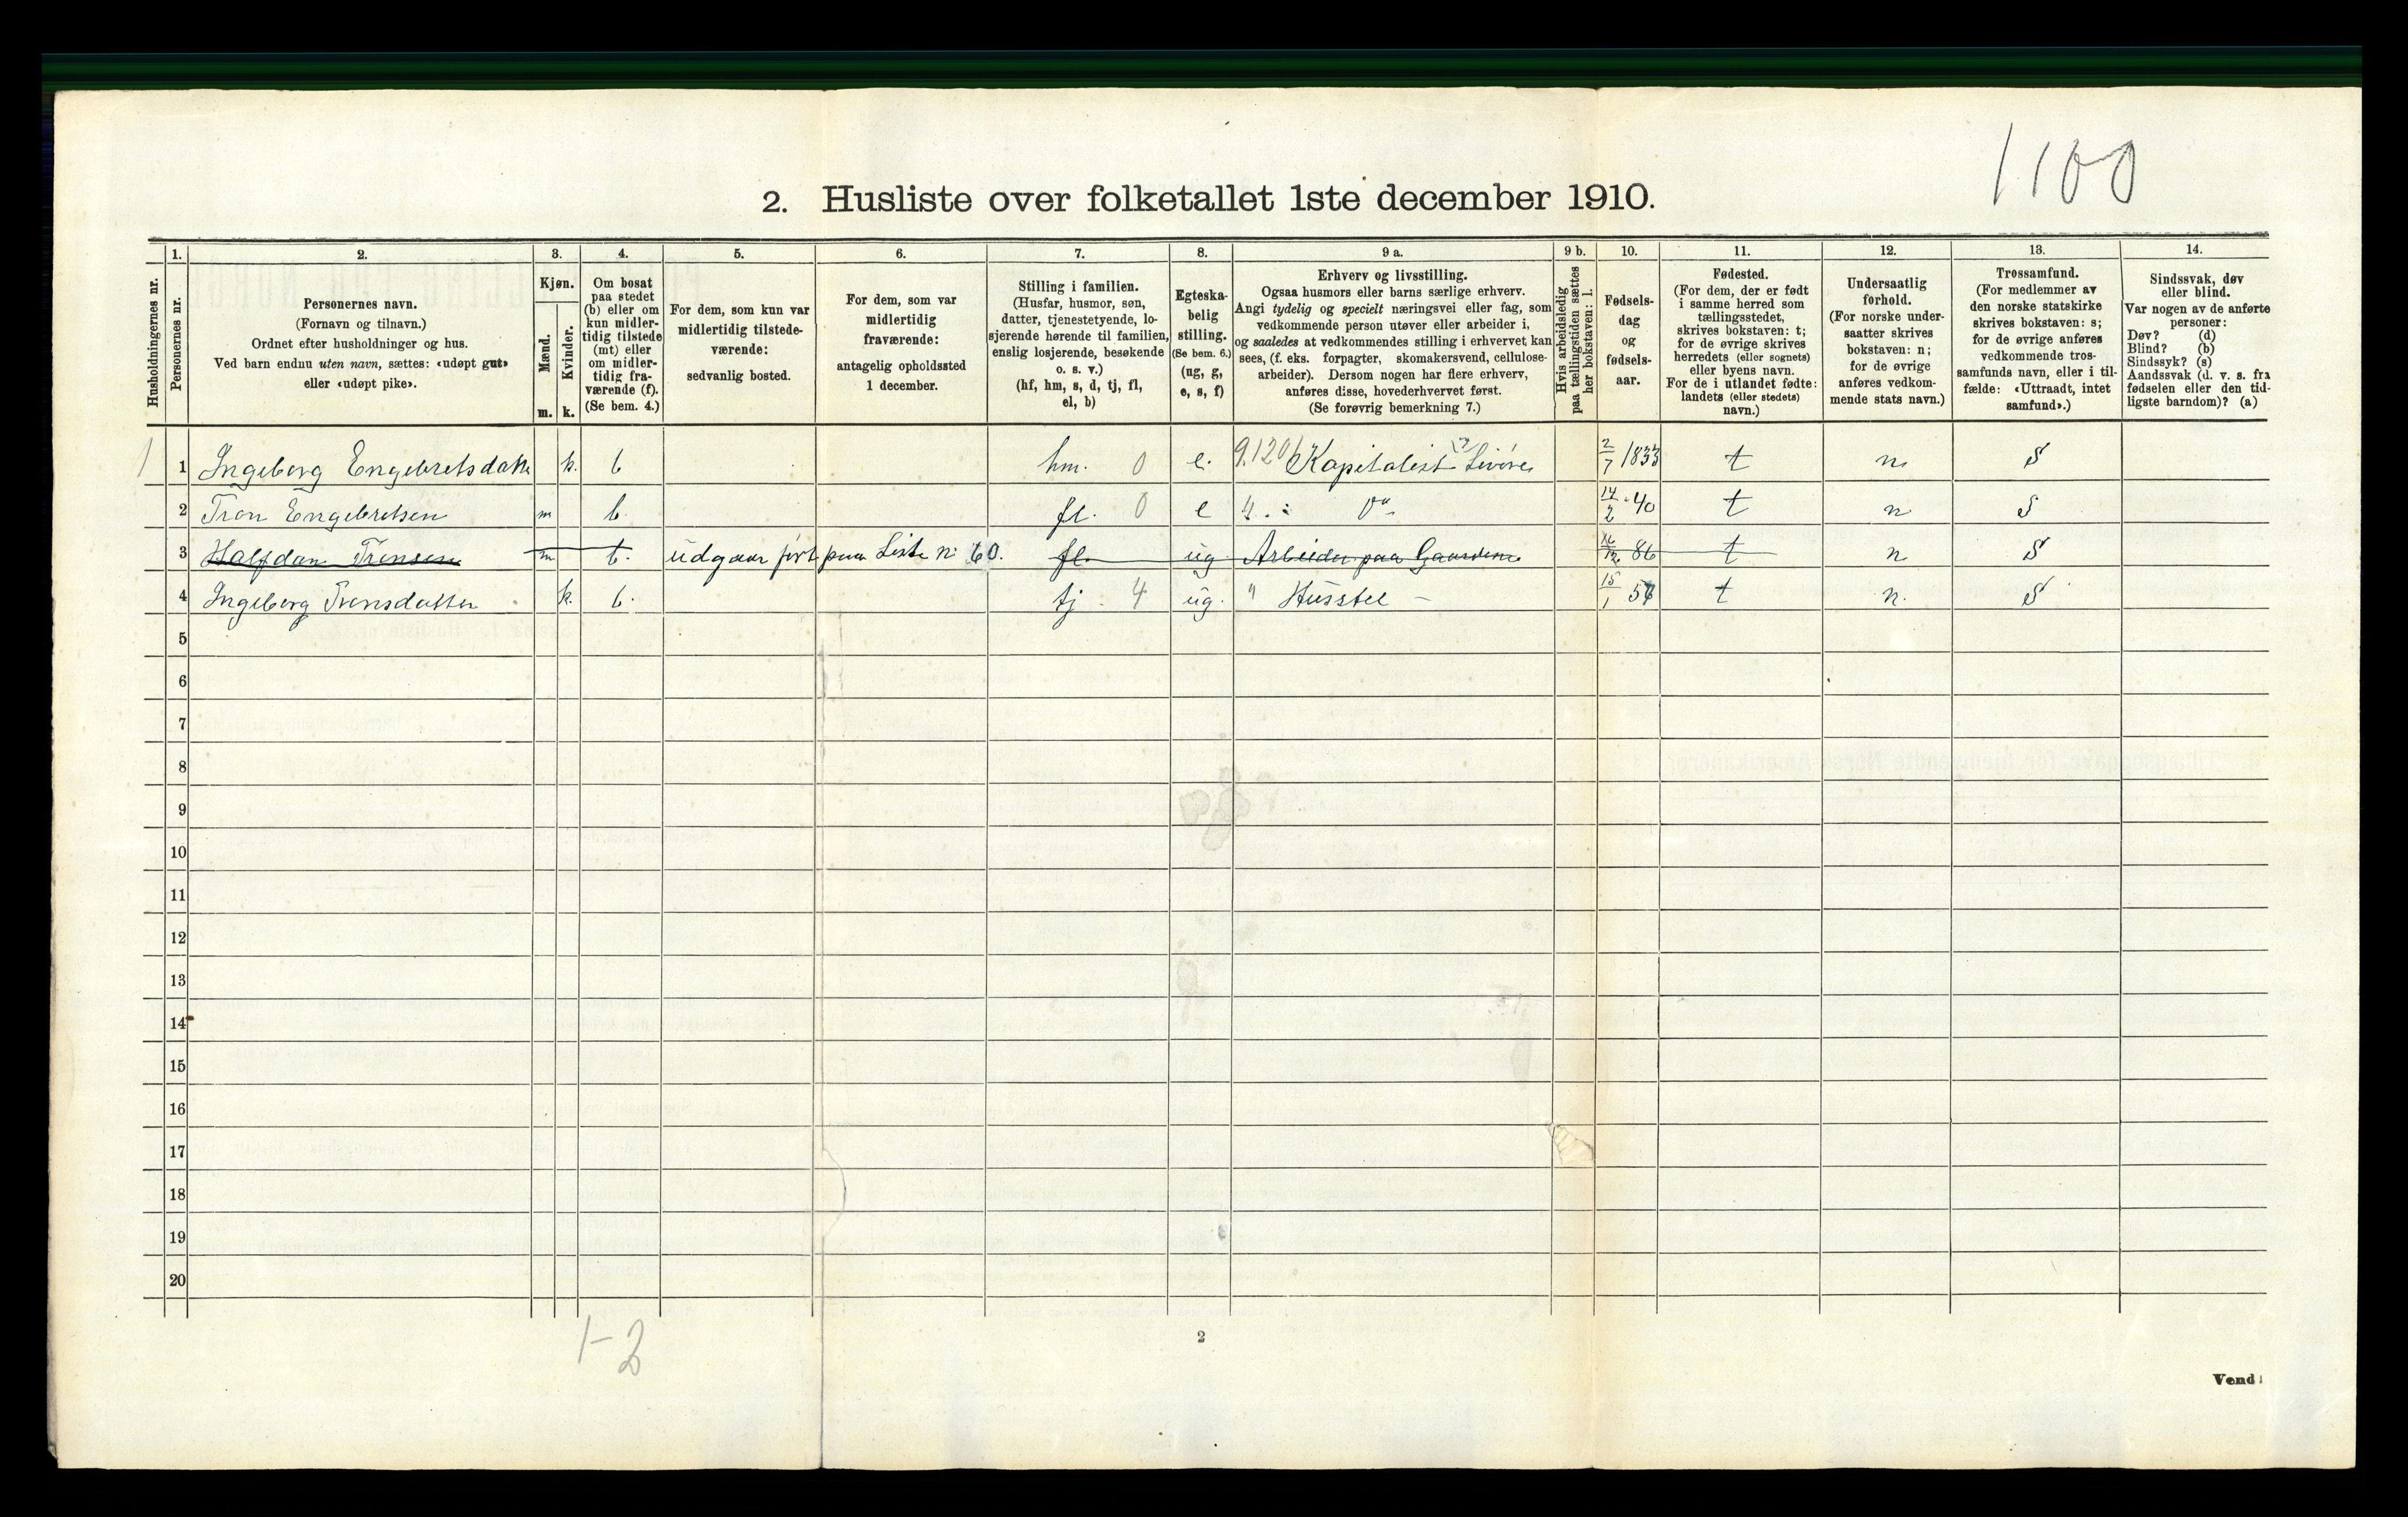 1100
2. Husliste over folketallet 1ste december 1910.
Husholdningernes nr.
1. Personernes nr.
2. Personernes navn.
(Fornavn og tilnavn.)
Ordnet efter husholdninger og hus.
Ved barn endnu uten navn, sættes: «udøpt gut»
eller «udøpt pike».
3. Kjøn.
Mænd. m.
Kvinder. k.
4. Om bosat
paa stedet
(b) eller om
kun midler-
tidig tilstede
(mt) eller
om midler-
tidig fra-
værende (f).
(Se bem. 4.)
5. For dem, som kun var
midlertidig tilstede-
værende:
sedvanlig bosted.
6. For dem, som var
midlertidig
fraværende:
antagelig opholdssted
1 december.
7. Stilling i familien.
(Husfar, husmor, søn,
datter, tjenestetyende, lo-
sjerende hørende til familien,
enslig losjerende, besøkende
o. s. v.)
(hf, hm, s, d, tj, fl,
el, b)
8. Egteska-
belig
stilling.
(Se bem. 6.)
(ug, g,
e, s, f)
9 a. Erhverv og livsstilling.
Ogsaa husmors eller barns særlige erhverv.
Angi tydelig og specielt næringsvei eller fag, som
vedkommende person utøver eller arbeider i,
og saaledes at vedkommendes stilling i erhvervet kan
sees, (f. eks. forpagter, skomakersvend, cellulose-
arbeider). Dersom nogen har flere erhverv,
anføres disse, hovederhvervet først.
(Se forøvrig bemerkning 7.)
9 b. Hvis arbeidsledig
paa tællingstiden sættes
her bokstaven: l.
10. Fødsels-
dag
og
fødsels-
aar.
11. Fødested.
(For dem, der er født
i samme herred som
tællingsstedet,
skrives bokstaven: t;
for de øvrige skrives
herredets (eller sognets)
eller byens navn.
For de i utlandet fødte:
landets (eller stedets)
navn.)
12. Undersaatlig
forhold.
(For norske under-
saatter skrives
bokstaven: n;
for de øvrige
anføres vedkom-
mende stats navn.)
13. Trossamfund.
(For medlemmer av
den norske statskirke
skrives bokstaven: s;
for de øvrige anføres
vedkommende tros-
samfunds navn, eller i til-
fælde: «Uttraadt, intet
samfund».)
14. Sindssvak, døv
eller blind.
Var nogen av de anførte
personer:
Døv? (d)
Blind? (b)
Sindssyk? (s)
Aandssvak (d. v. s. fra
fødselen eller den tid-
ligste barndom)? (a)
1 1 Ingeborg Engebretsdatte k. b hm. 0 e. 9.120 Kapitalist 2/7 1833 t n. S
2 Tron Engebretsen m b. fl. 0 e 14/2 40 t n S
3 Halfdan Tronsen m t. udgaar ført paa Liste n: 60. fl. ug Arbeider paa Gaarden 86 t n S
4 Ingeborg Tronsdatter k. b. tj. 4 ug. " Husstel - 15/1 t n. S
5
6
7
8
9
10
11
12
13
14
15
16
17
18
19
20
1-2
2
Vend!